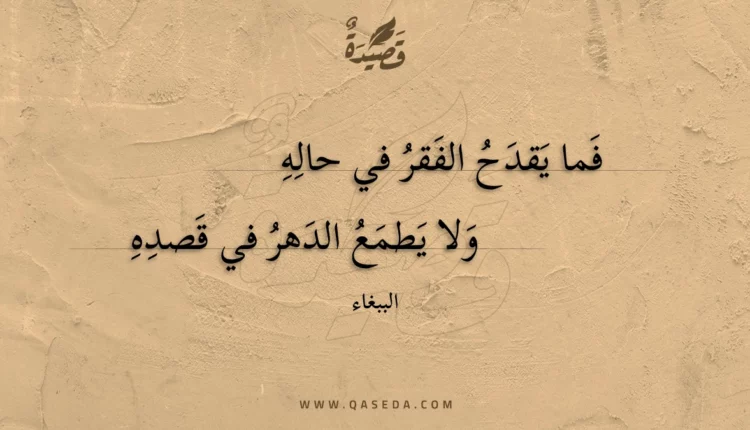 قَصِيْدَةٌ
فَما يَقدَحُ الفَقرُ في حالِهِ
وَلا يَطمَعُ الدَهرُ في قَصدِهِ
الببغاء
WWW.QASEDA.COM